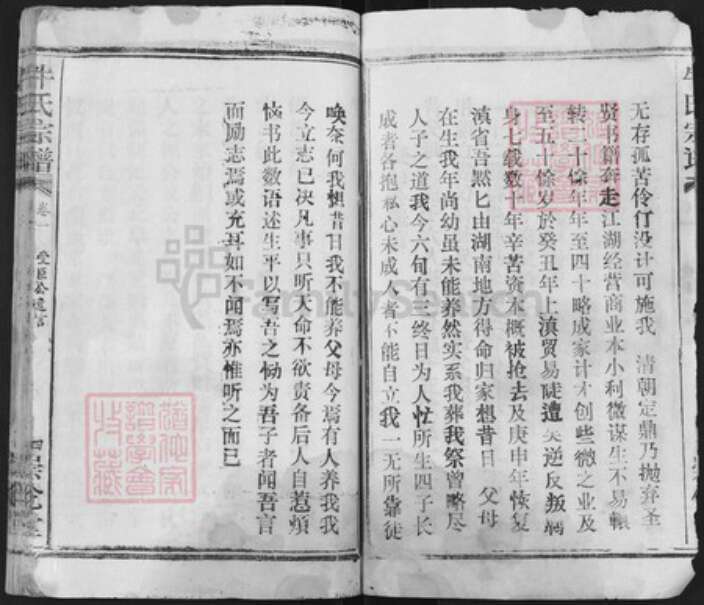 无存孤苦伶仃没计可施我 清朝定鼎乃抛弃圣
贤书籍奔走江湖经营商业本小利微谋生不易辗
转二十馀年年至四十略成家计才创些微之业及
至五十馀岁於癸丑年上滇贸易陡遭 逆反叛羁
身七载数十年辛苦资本概被抢去及庚申年恢复
滇省吾默匕由湖南地方得命归家想昔日 父母
在生我年尚幼虽未能养然实系我葬我祭曾略尽
人子之道我今六旬有三终日为人忙所生四子长
成者各抱私心未成人者不能自立我一无所靠徒
唤奈何我想昔日我不能养父母今焉有人养我我
今立志已决凡事只听天命不欲责备后人自惹烦
恼书此数语述生平以写吾之恸为吾子者闻吾言
而励志焉或充耳如不闻焉亦惟听之而已
牛氏宗谱
卷一
FamilySearch